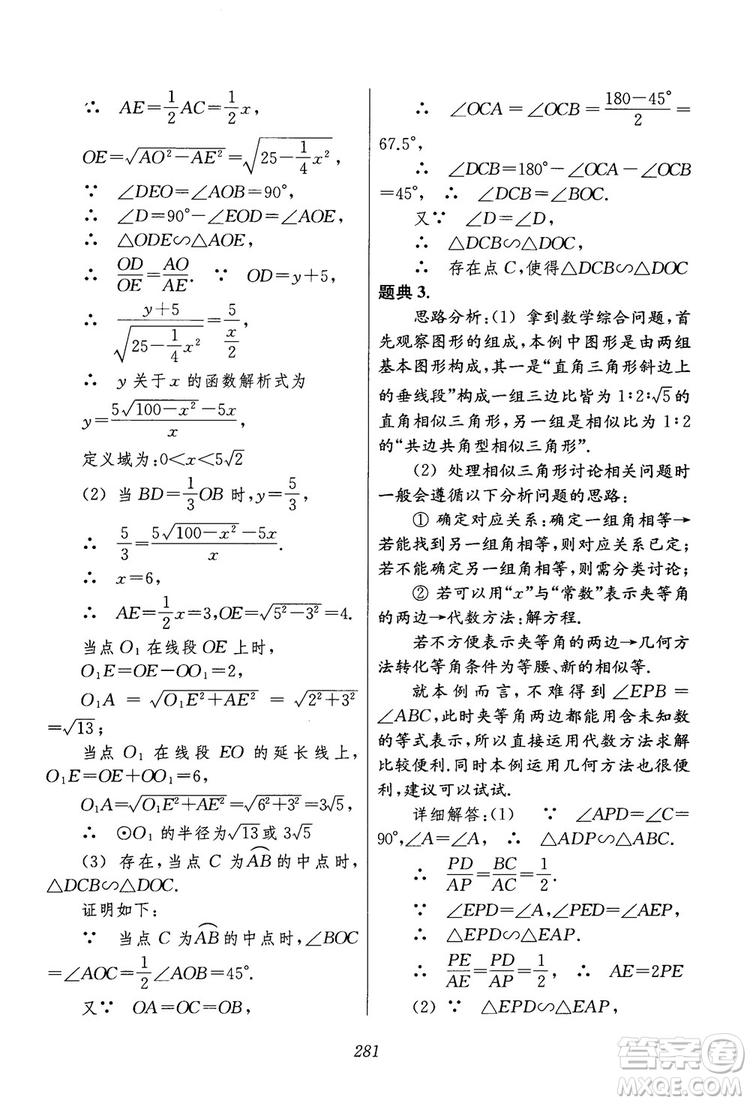 ∴ AE=1/2AC=1/2x,
OE=√(AO²-AE²)=√(25-1/4x²),
∵ ∠DEO=∠AOB=90°,
∴ ∠D=90°-∠EOD=∠AOE,
∴ △ODE∽△AOE,
∴ OD/OE=AO/AE. ∵ OD=y+5,
∴ (y+5)/√(25-1/4x²)=5/(x/2)
∴ y关于x的函数解析式为
y=(5√(100-x²)-5x)/x
定义域为:0<x<5√2
(2) 当BD=1/3OB时,y=5/3,
∴ 5/3=(5√(100-x²)-5x)/x.
∴ x=6,
∴ AE=1/2x=3,OE=√(5²-3²)=4.
当点O₁在线段OE上时,
O₁E=OE-OO₁=2,
O₁A=√(O₁E²+AE²)=√(2²+3²)
=√13;
当点O₁在线段EO的延长线上,
O₁E=OE+OO₁=6,
O₁A=√(O₁E²+AE²)=√(6²+3²)=3√5,
∴ ⊙O₁的半径为√13或3√5
(3) 存在,当点C为AB⌒的中点时,
△DCB∽△DOC.
证明如下:
∵ 当点C为AB⌒的中点时,∠BOC
=∠AOC=1/2∠AOB=45°.
又∵ OA=OC=OB,
∴ ∠OCA=∠OCB=(180-45°)/2=
67.5°,
∴ ∠DCB=180°-∠OCA-∠OCB
=45°, ∴ ∠DCB=∠BOC.
又∵ ∠D=∠D,
∴ △DCB∽△DOC,
∴ 存在点C,使得△DCB∽△DOC
题典3.
思路分析:(1) 拿到数学综合问题,首
先观察图形的组成,本例中图形是由两组
基本图形构成,其一是“直角三角形斜边上
的垂线段”构成一组三边比皆为1∶2∶√5的
直角相似三角形,另一组是相似比为1∶2
的“共边共角型相似三角形”.
(2) 处理相似三角形讨论相关问题时
一般会遵循以下分析问题的思路:
① 确定对应关系:确定一组角相等→
若能发现另一组角相等,则对应关系已定;
若未能发现另一组角相等,则需分类讨论;
② 若可以用“x”与“常数”表示夹等角
的两边→代数方法:解方程.
若不方便表示夹等角的两边→几何方
法转化等角条件为等腰、新的相似等.
就本例而言,不难得到∠EPB=
∠ABC,此时夹等角两边都能用含未知数
的等式表示,所以直接运用代数方法求解
比较便利.同时本例运用几何方法也很便
利,建议可以试试.
详细解答:(1) ∵ ∠APD=∠C=
90°,∠A=∠A, ∴ △ADP∽△ABC.
∴ PD/AP=BC/AC=1/2.
∵ ∠EPD=∠A,∠PED=∠AEP,
∴ △EPD∽△EAP.
∴ PE/AE=PD/AP=1/2. ∴ AE=2PE
(2) ∵ △EPD∽△EAP,
281
答案圈
MXQE.COM